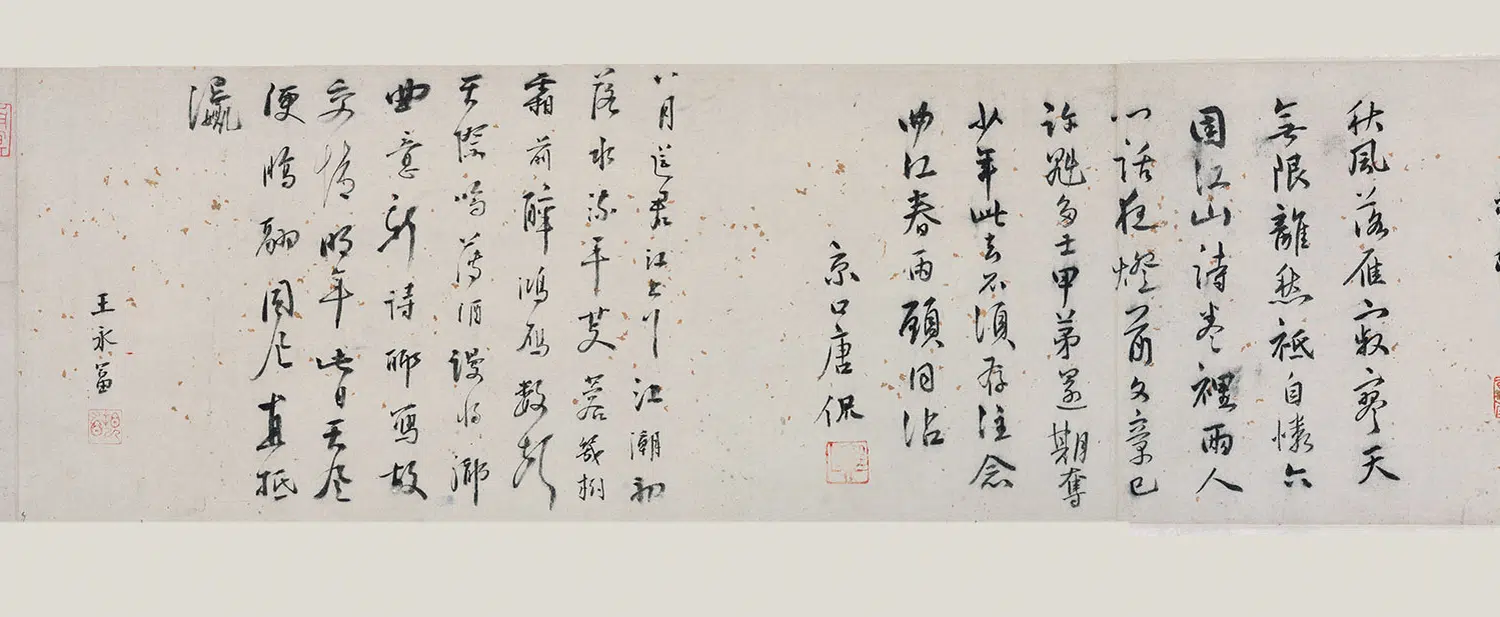 秋風落雁寂寥天
無限離愁祗自憐六
國江山詩卷裡兩人
心話夜燈前文章已
許魁多士甲第還期奪
少年此去不須存注念
曲江春雨願同沾
京口唐侃
八月送君江上行江潮初
落水流平芙蓉幾樹
霜前醉鴻雁數聲
天際鳴薄酒謾將鄉
曲意新詩聊寫故
交情明年此日天風
便鵬翮同風直抵
瀛
王永富